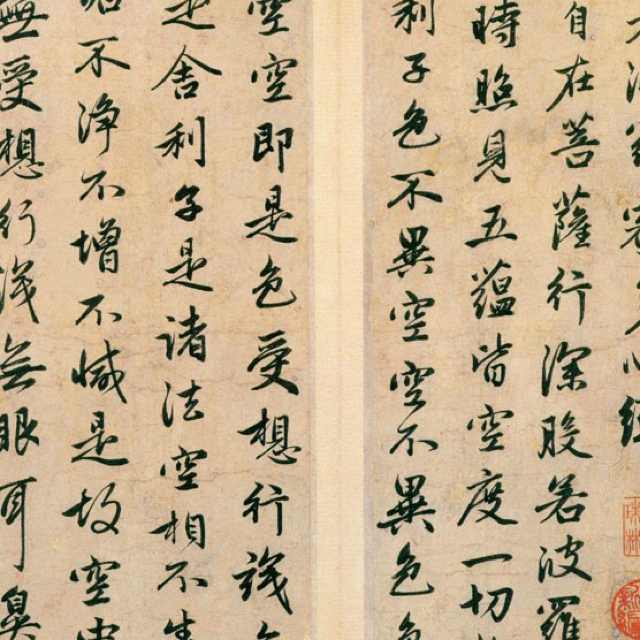 心經
自在菩薩行深般若波羅
時照見五蘊皆空度一切
利子色不異空空不異色
空空即是色受想行識
是舍利子是諸法空相不生
不淨不增不減是故空
無受想行識無眼耳鼻